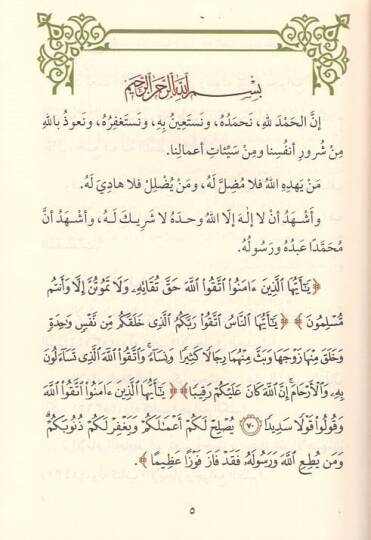 بِسْمِ اللَّهِ الرَّحْمَنِ الرَّحِيمِ
إِنَّ الحَمْدَ للهِ، نَحمَدُهُ، ونَستَعِينُ بِهِ، ونَستَغفِرُهُ، ونَعوذُ باللهِ
مِنْ شُرورِ أنفُسِنا ومِنْ سَيِّئاتِ أعمالِنا.
مَنْ يَهدِهِ اللهُ فلا مُضِلَّ لَهُ، ومَنْ يُضْلِلْ فلا هادِيَ لَهُ.
وأَشْهَدُ أنْ لا إلهَ إلَّا اللهُ وحدَهُ لا شَرِيكَ لَهُ، وأشهَدُ أنَّ
مُحَمَّدًا عَبدُهُ ورَسُولُهُ.
﴿ يَٰٓأَيُّهَا ٱلَّذِينَ ءَامَنُوا۟ ٱتَّقُوا۟ ٱللَّهَ حَقَّ تُقَاتِهِۦ وَلَا تَمُوتُنَّ إِلَّا وَأَنتُم
مُّسْلِمُونَ ﴾ ﴿ يَٰٓأَيُّهَا ٱلنَّاسُ ٱتَّقُوا۟ رَبَّكُمُ ٱلَّذِى خَلَقَكُم مِّن نَّفْسٍ وَٰحِدَةٍ
وَخَلَقَ مِنْهَا زَوْجَهَا وَبَثَّ مِنْهُمَا رِجَالًا كَثِيرًا وَنِسَآءً ۚ وَٱتَّقُوا۟ ٱللَّهَ ٱلَّذِى تَسَآءَلُونَ
بِهِۦ وَٱلْأَرْحَامَ ۚ إِنَّ ٱللَّهَ كَانَ عَلَيْكُمْ رَقِيبًا ﴾ ﴿ يَٰٓأَيُّهَا ٱلَّذِينَ ءَامَنُوا۟ ٱتَّقُوا۟ ٱللَّهَ
وَقُولُوا۟ قَوْلًا سَدِيدًا ٧٠ يُصْلِحْ لَكُمْ أَعْمَٰلَكُمْ وَيَغْفِرْ لَكُمْ ذُنُوبَكُمْ ۗ
وَمَن يُطِعِ ٱللَّهَ وَرَسُولَهُۥ فَقَدْ فَازَ فَوْزًا عَظِيمًا ﴾.
٥